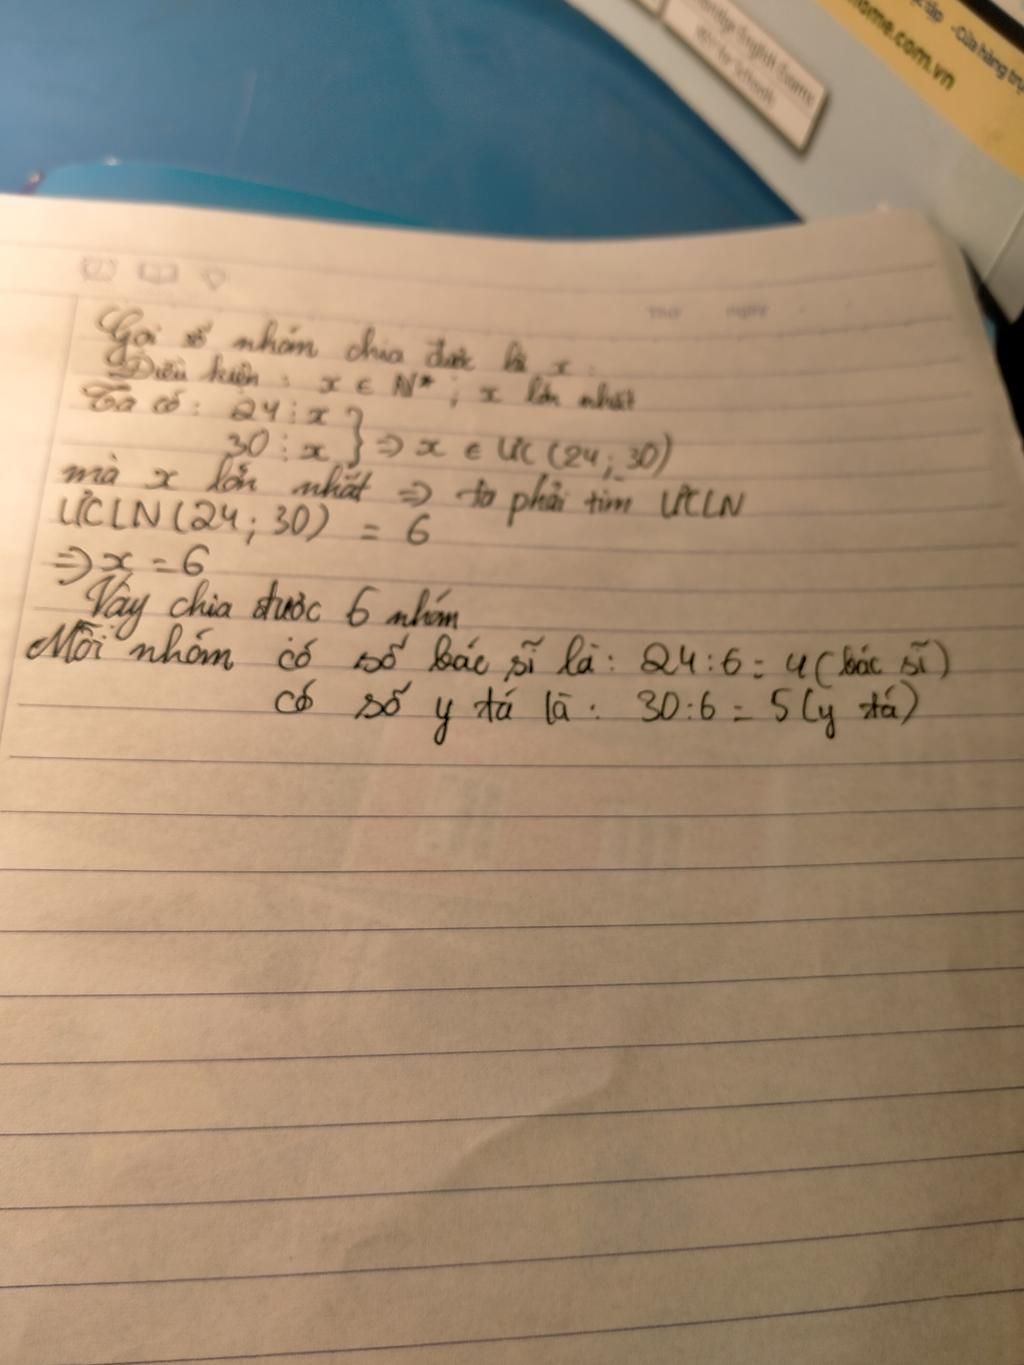 Cambridge English Exams
for Schools
home.com.vn
-Cửa hàng
Thứ ngày
Gọi số nhóm chia được là x.
Điều kiện : x ∈ N* ; x lớn nhất
Ta có : 24 ⋮ x
30 ⋮ x } ⇒ x ∈ ƯC (24 ; 30)
mà x lớn nhất ⇒ ta phải tìm ƯCLN
ƯCLN (24 ; 30) = 6
⇒ x = 6
Vậy chia được 6 nhóm
Mỗi nhóm có số bác sĩ là : 24 : 6 = 4 (bác sĩ)
có số y tá là : 30 : 6 = 5 (y tá)